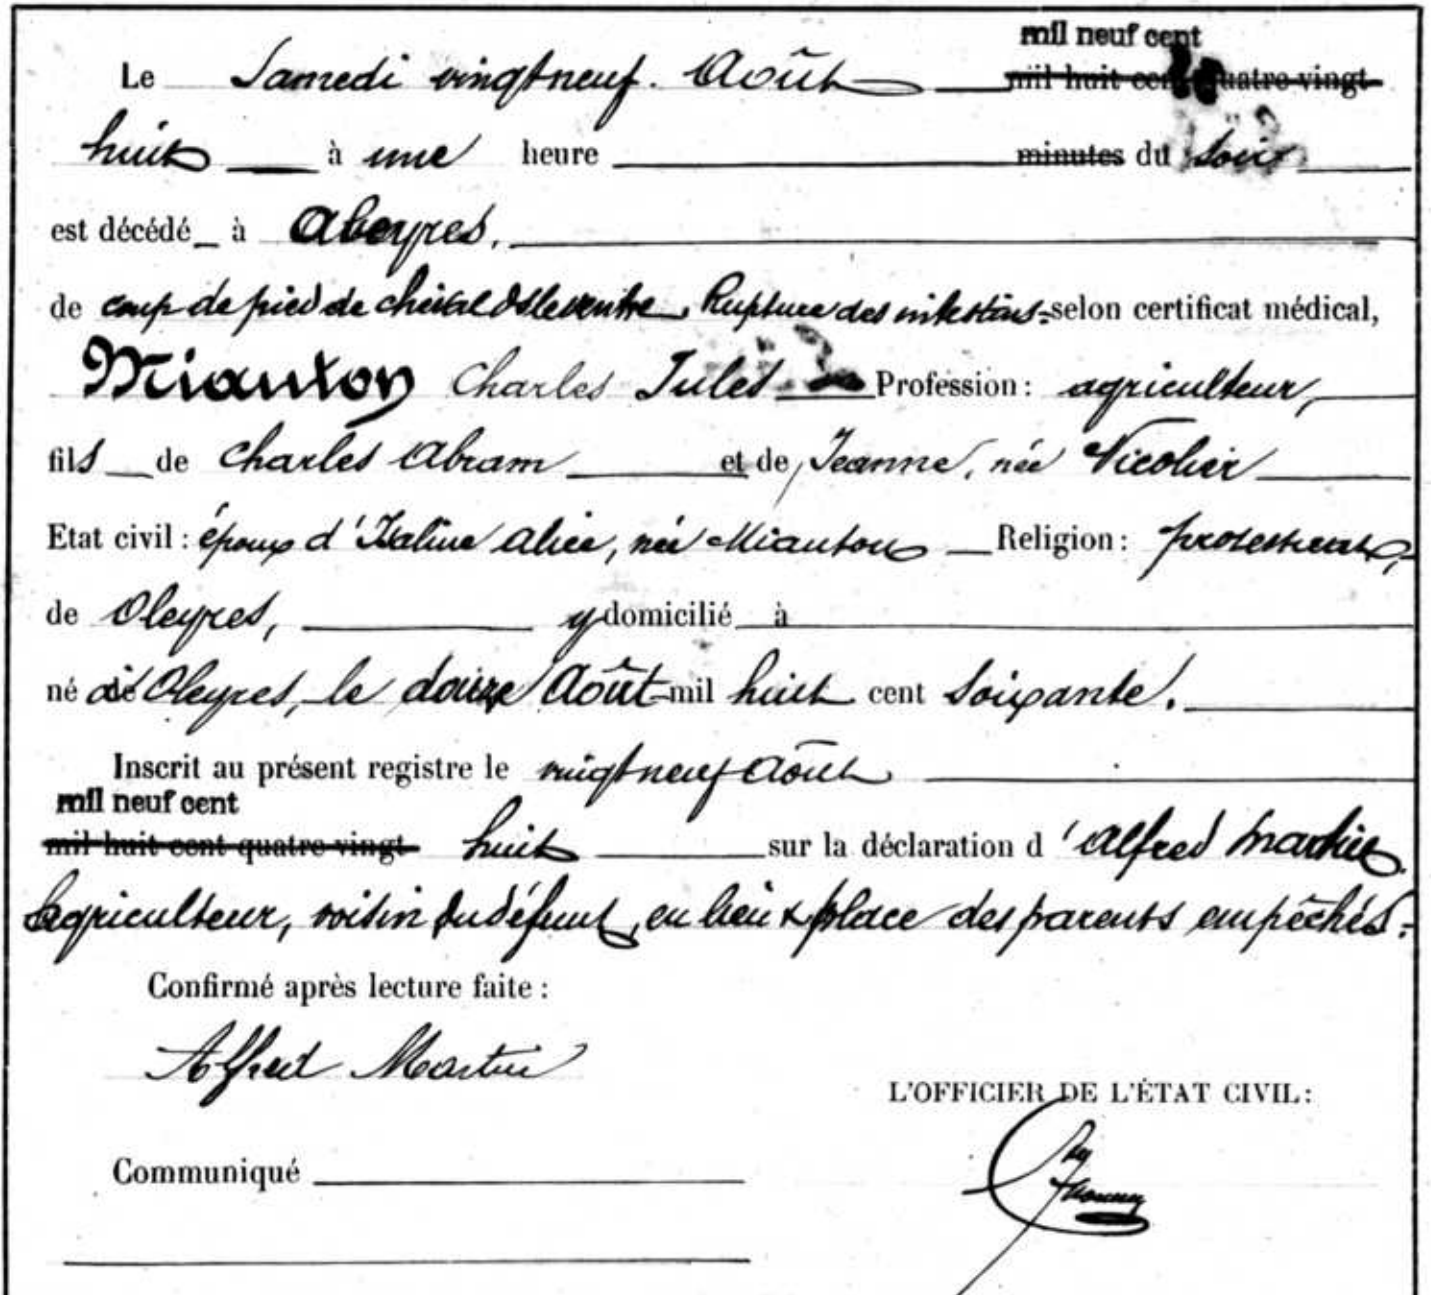 mil neuf cent
Le Samedi vingt neuf. Août mil huit cent quatre-vingt
huit à une heure minutes du soir
est décédé à Oleyres,
de coup de pied de cheval ds le ventre, Rupture des intestins selon certificat médical,
Miauton Charles Jules Profession: agriculteur,
fils de Charles Abram et de Jeanne, née Nicolier
Etat civil: époux d'Isaline Alice, née Miauton Religion: protestante,
de Oleyres, y domicilié à
né à Oleyres, le douze Août mil huit cent soixante.
Inscrit au présent registre le vingt neuf Août
mil neuf cent
mil huit cent quatre-vingt huit sur la déclaration d'Alfred Martin
agriculteur, voisin du défunt, en lieu & place des parents empêchés.
Confirmé après lecture faite:
Alfred Martin
L'OFFICIER DE L'ÉTAT CIVIL:
Communiqué